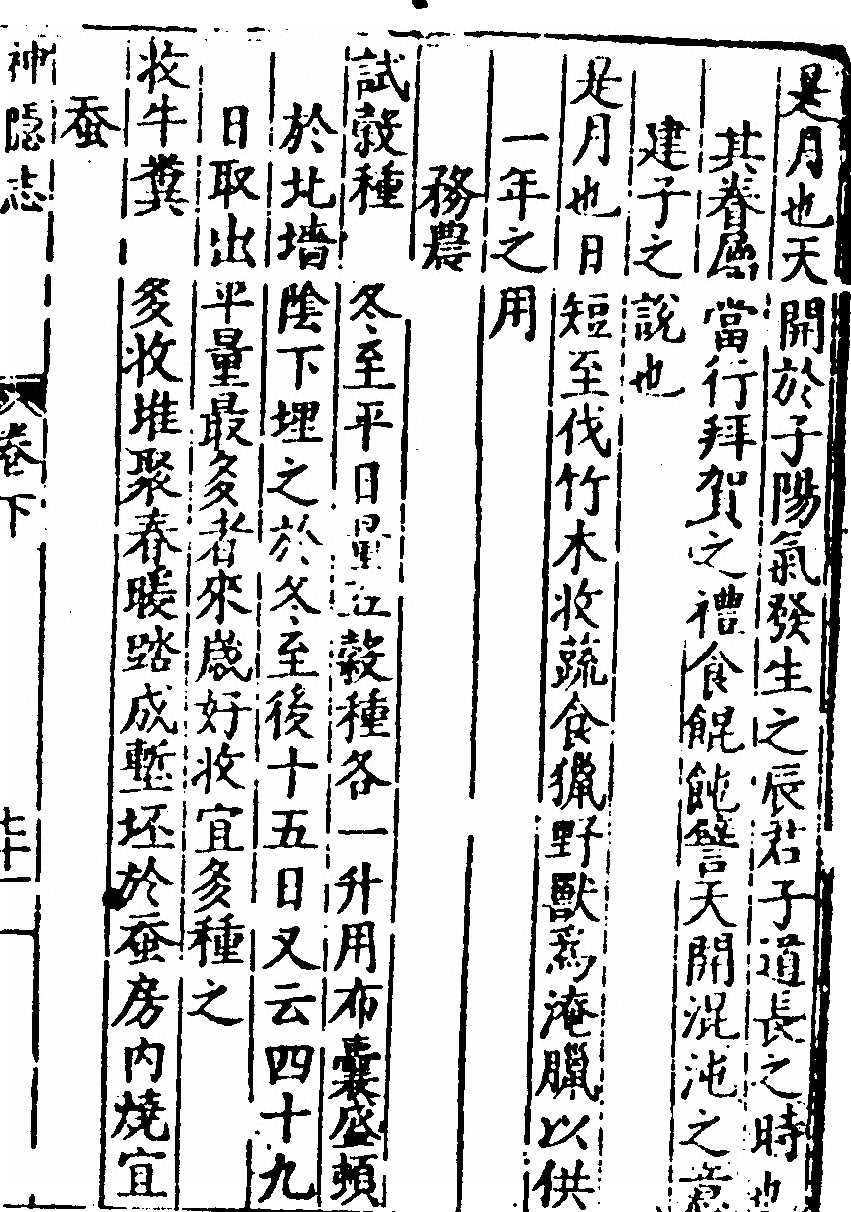 是月也天開於子陽氣發生之辰君子道長之時也
其眷屬當行拜賀之禮食餛飩譬天開混沌之意
建子之說也
是月也日短至伐竹木收蔬食獵野獸為淹臘以供
一年之用
務農
試穀種 冬至平日量五穀種各一升用布囊盛頓
於北墻陰下埋之於冬至後十五日又云四十九
日取出平量最多者來歲好收宜多種之
收牛糞 多收堆聚春暖踏成墼坯於蚕房內燒宜
蚕
神隱志 卷下 七十一